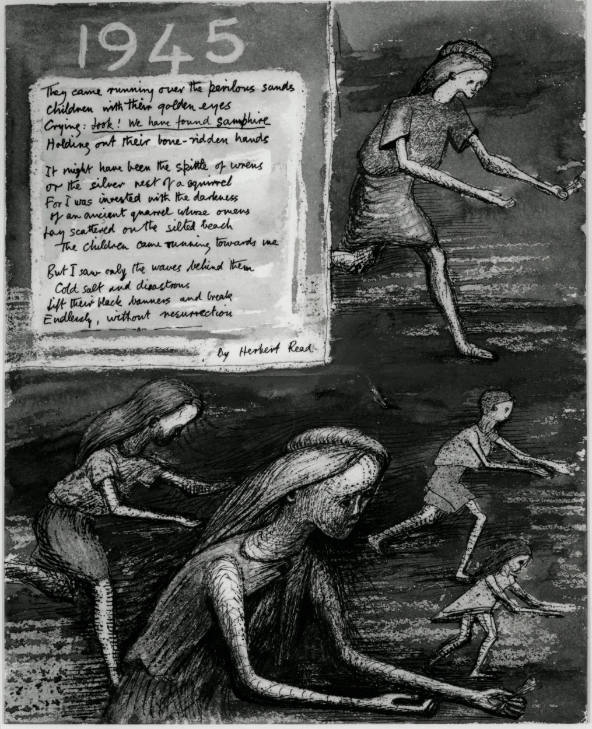 1945
They came running over the perilous sands
Children with their golden eyes
Crying: Look! We have found samphire
Holding out their bone-ridden hands
It might have been the spittle of wrens
or the silver nest of a squirrel
For I was invested with the darkness
of an ancient quarrel whose omens
Lay scattered on the silted beach
The children came running towards me
But I saw only the waves behind them
Cold salt and disastrous
Lift their black banners and break
Endlessly, without resurrection
by Herbert Read